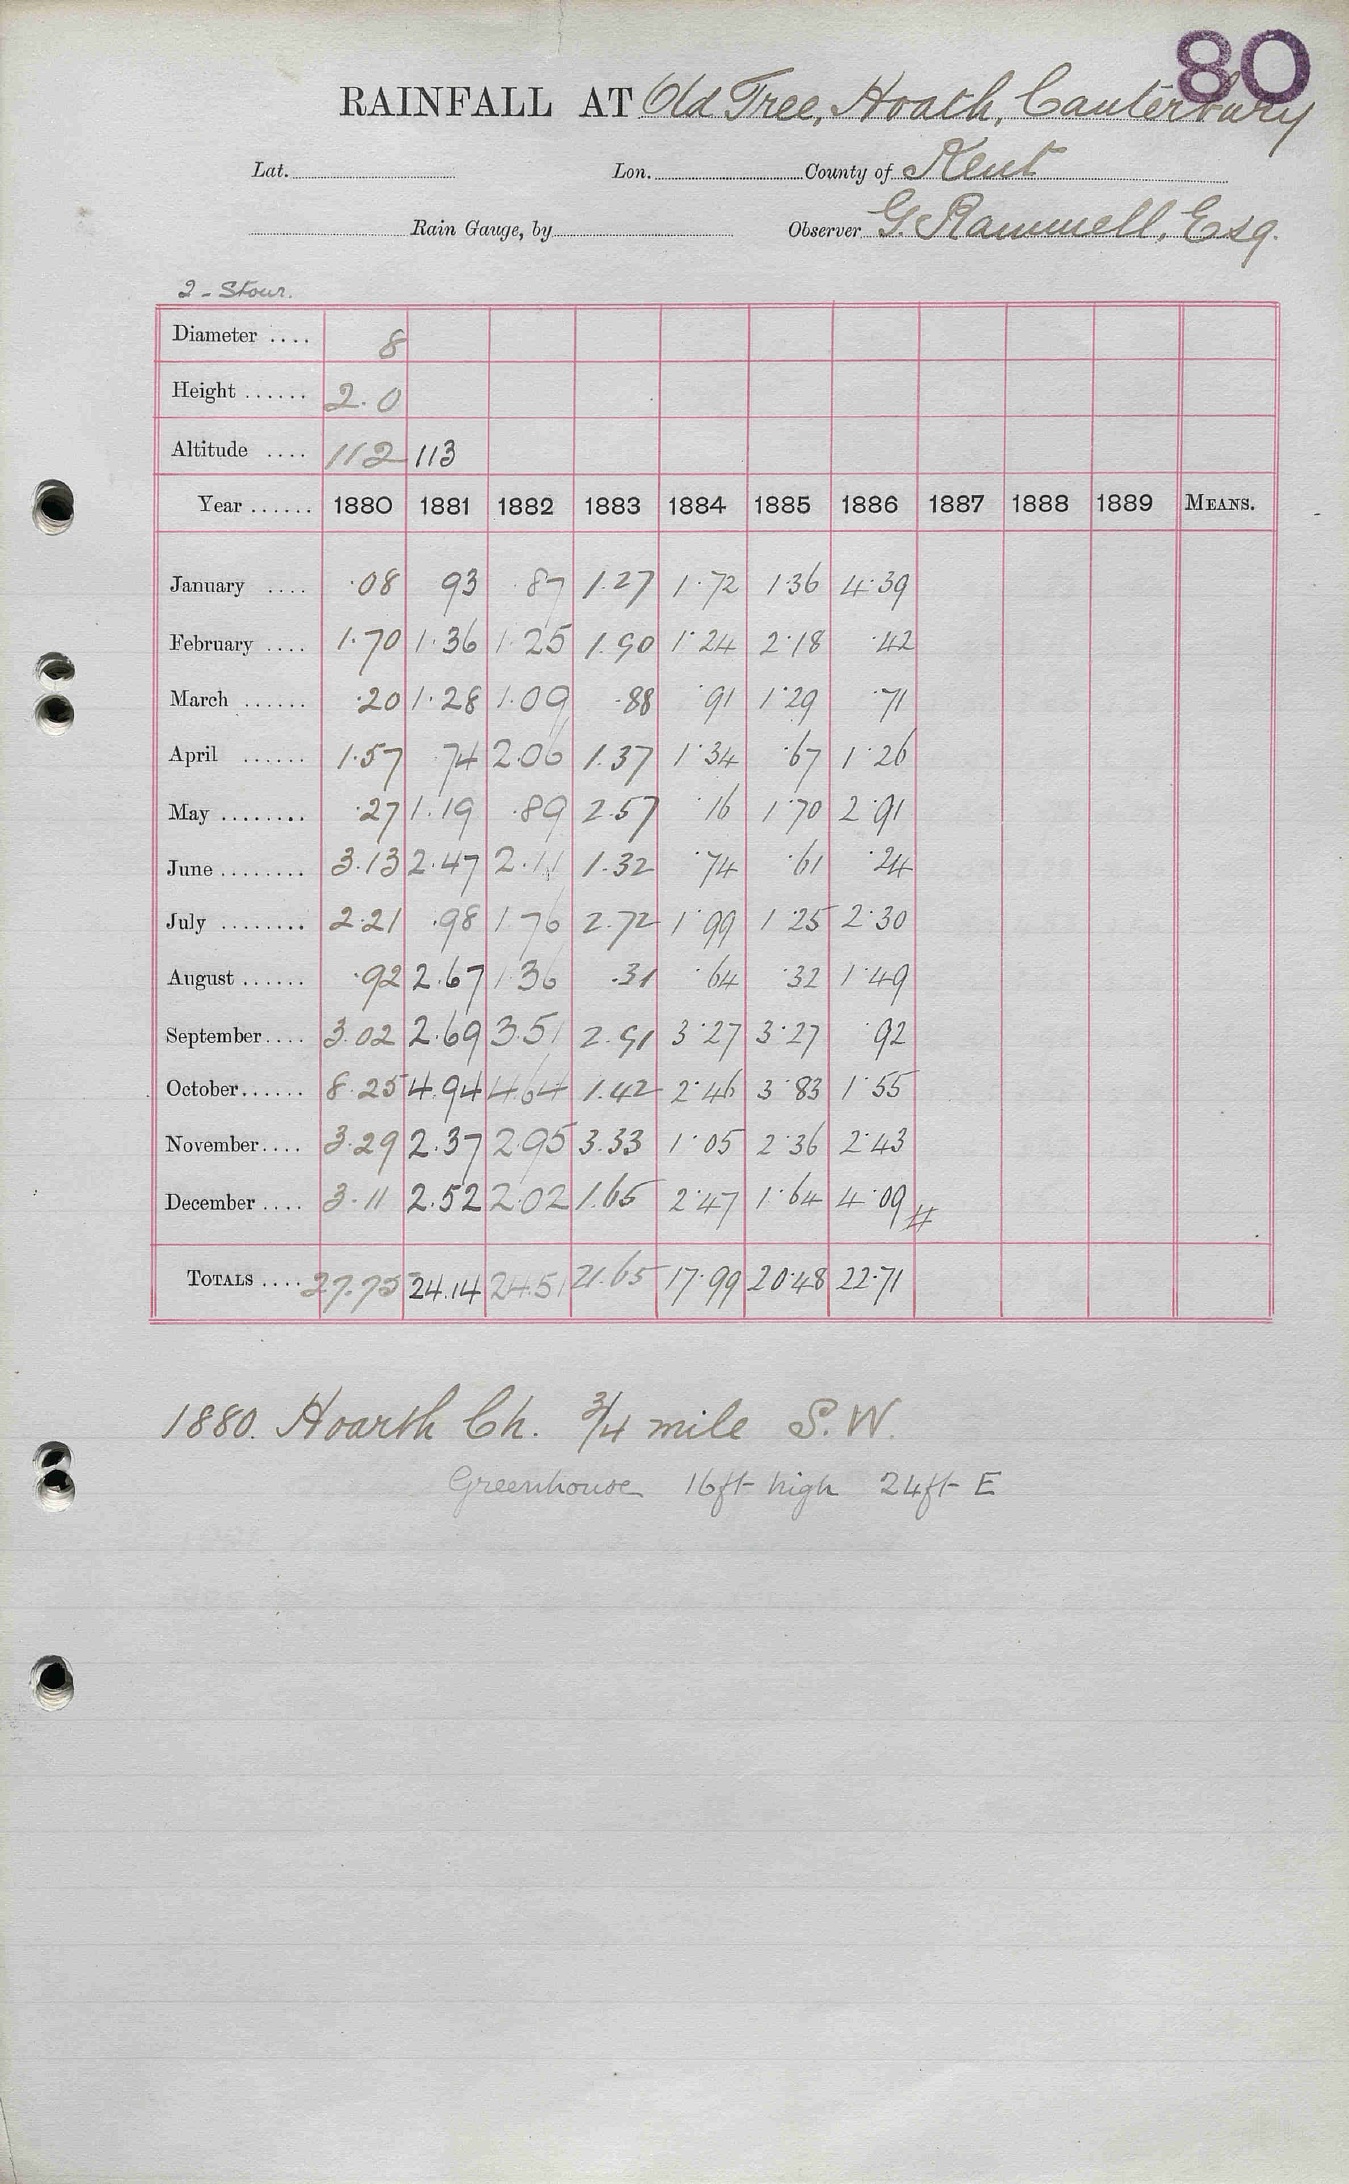 80
RAINFALL AT Old Tree, Hoath, Canterbury
Lat. Lon. County of Kent
Rain Gauge, by Observer G. Rammell, Esq.
2 - Stour.
Diameter .... 8
Height ...... 2.0
Altitude .... 112 113
Year ...... 1880 1881 1882 1883 1884 1885 1886 1887 1888 1889 MEANS.
January .... .08 93 .87 1.27 1.72 1.36 4.39
February .... 1.70 1.36 1.25 1.90 1.24 2.18 .42
March ...... .20 1.28 1.09 .88 .91 1.29 .71
April ...... 1.57 .74 2.06 1.37 1.34 .67 1.26
May ........ .27 1.19 .89 2.57 .16 1.70 2.91
June ........ 3.13 2.47 2.11 1.32 .74 .61 .24
July ........ 2.21 .98 1.76 2.72 1.99 1.25 2.30
August ...... .92 2.67 1.36 .31 .64 .32 1.49
September .... 3.02 2.69 3.51 2.91 3.27 3.27 .92
October ...... 8.25 4.94 4.64 1.42 2.46 3.83 1.55
November .... 3.29 2.37 2.95 3.33 1.05 2.36 2.43
December .... 3.11 2.52 2.02 1.65 2.47 1.64 4.09 #
TOTALS .... 27.75 24.14 24.51 21.65 17.99 20.48 22.71
1880. Hoarth Ch. 3/4 mile S.W.
Greenhouse 16ft high 24ft E